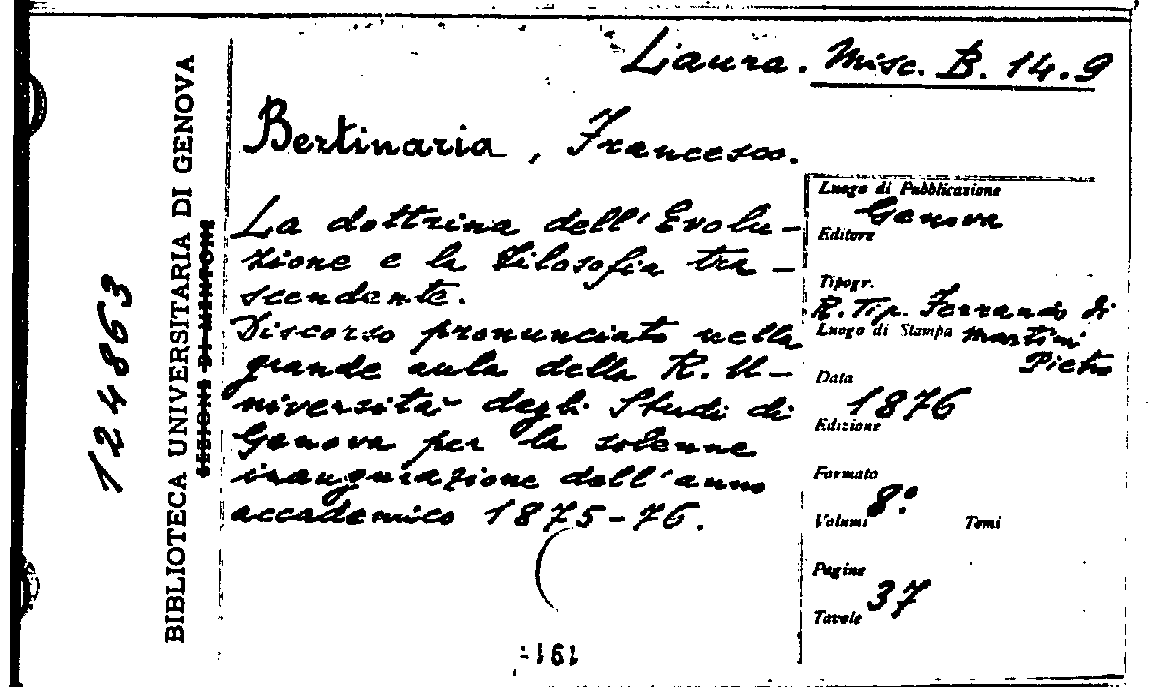 Liaura. Misc. B. 14.9
Bertinaria, Francesco.
La dottrina dell'Evolu-
zione e la Filosofia tra-
scendente.
Discorso pronunciato nella
grande aula della R. U-
niversità degli Studi di
Genova per la solenne
inaugurazione dell'anno
accademico 1875-76.
Luogo di Pubblicazione
Genova
Editore
Tipogr.
R. Tip. Ferrando di
Luogo di Stampa Martini
Pietro
Data
1876
Edizione
Formato
8°
Volumi Tomi
Pagine
37
Tavole
BIBLIOTECA UNIVERSITARIA DI GENOVA
124863